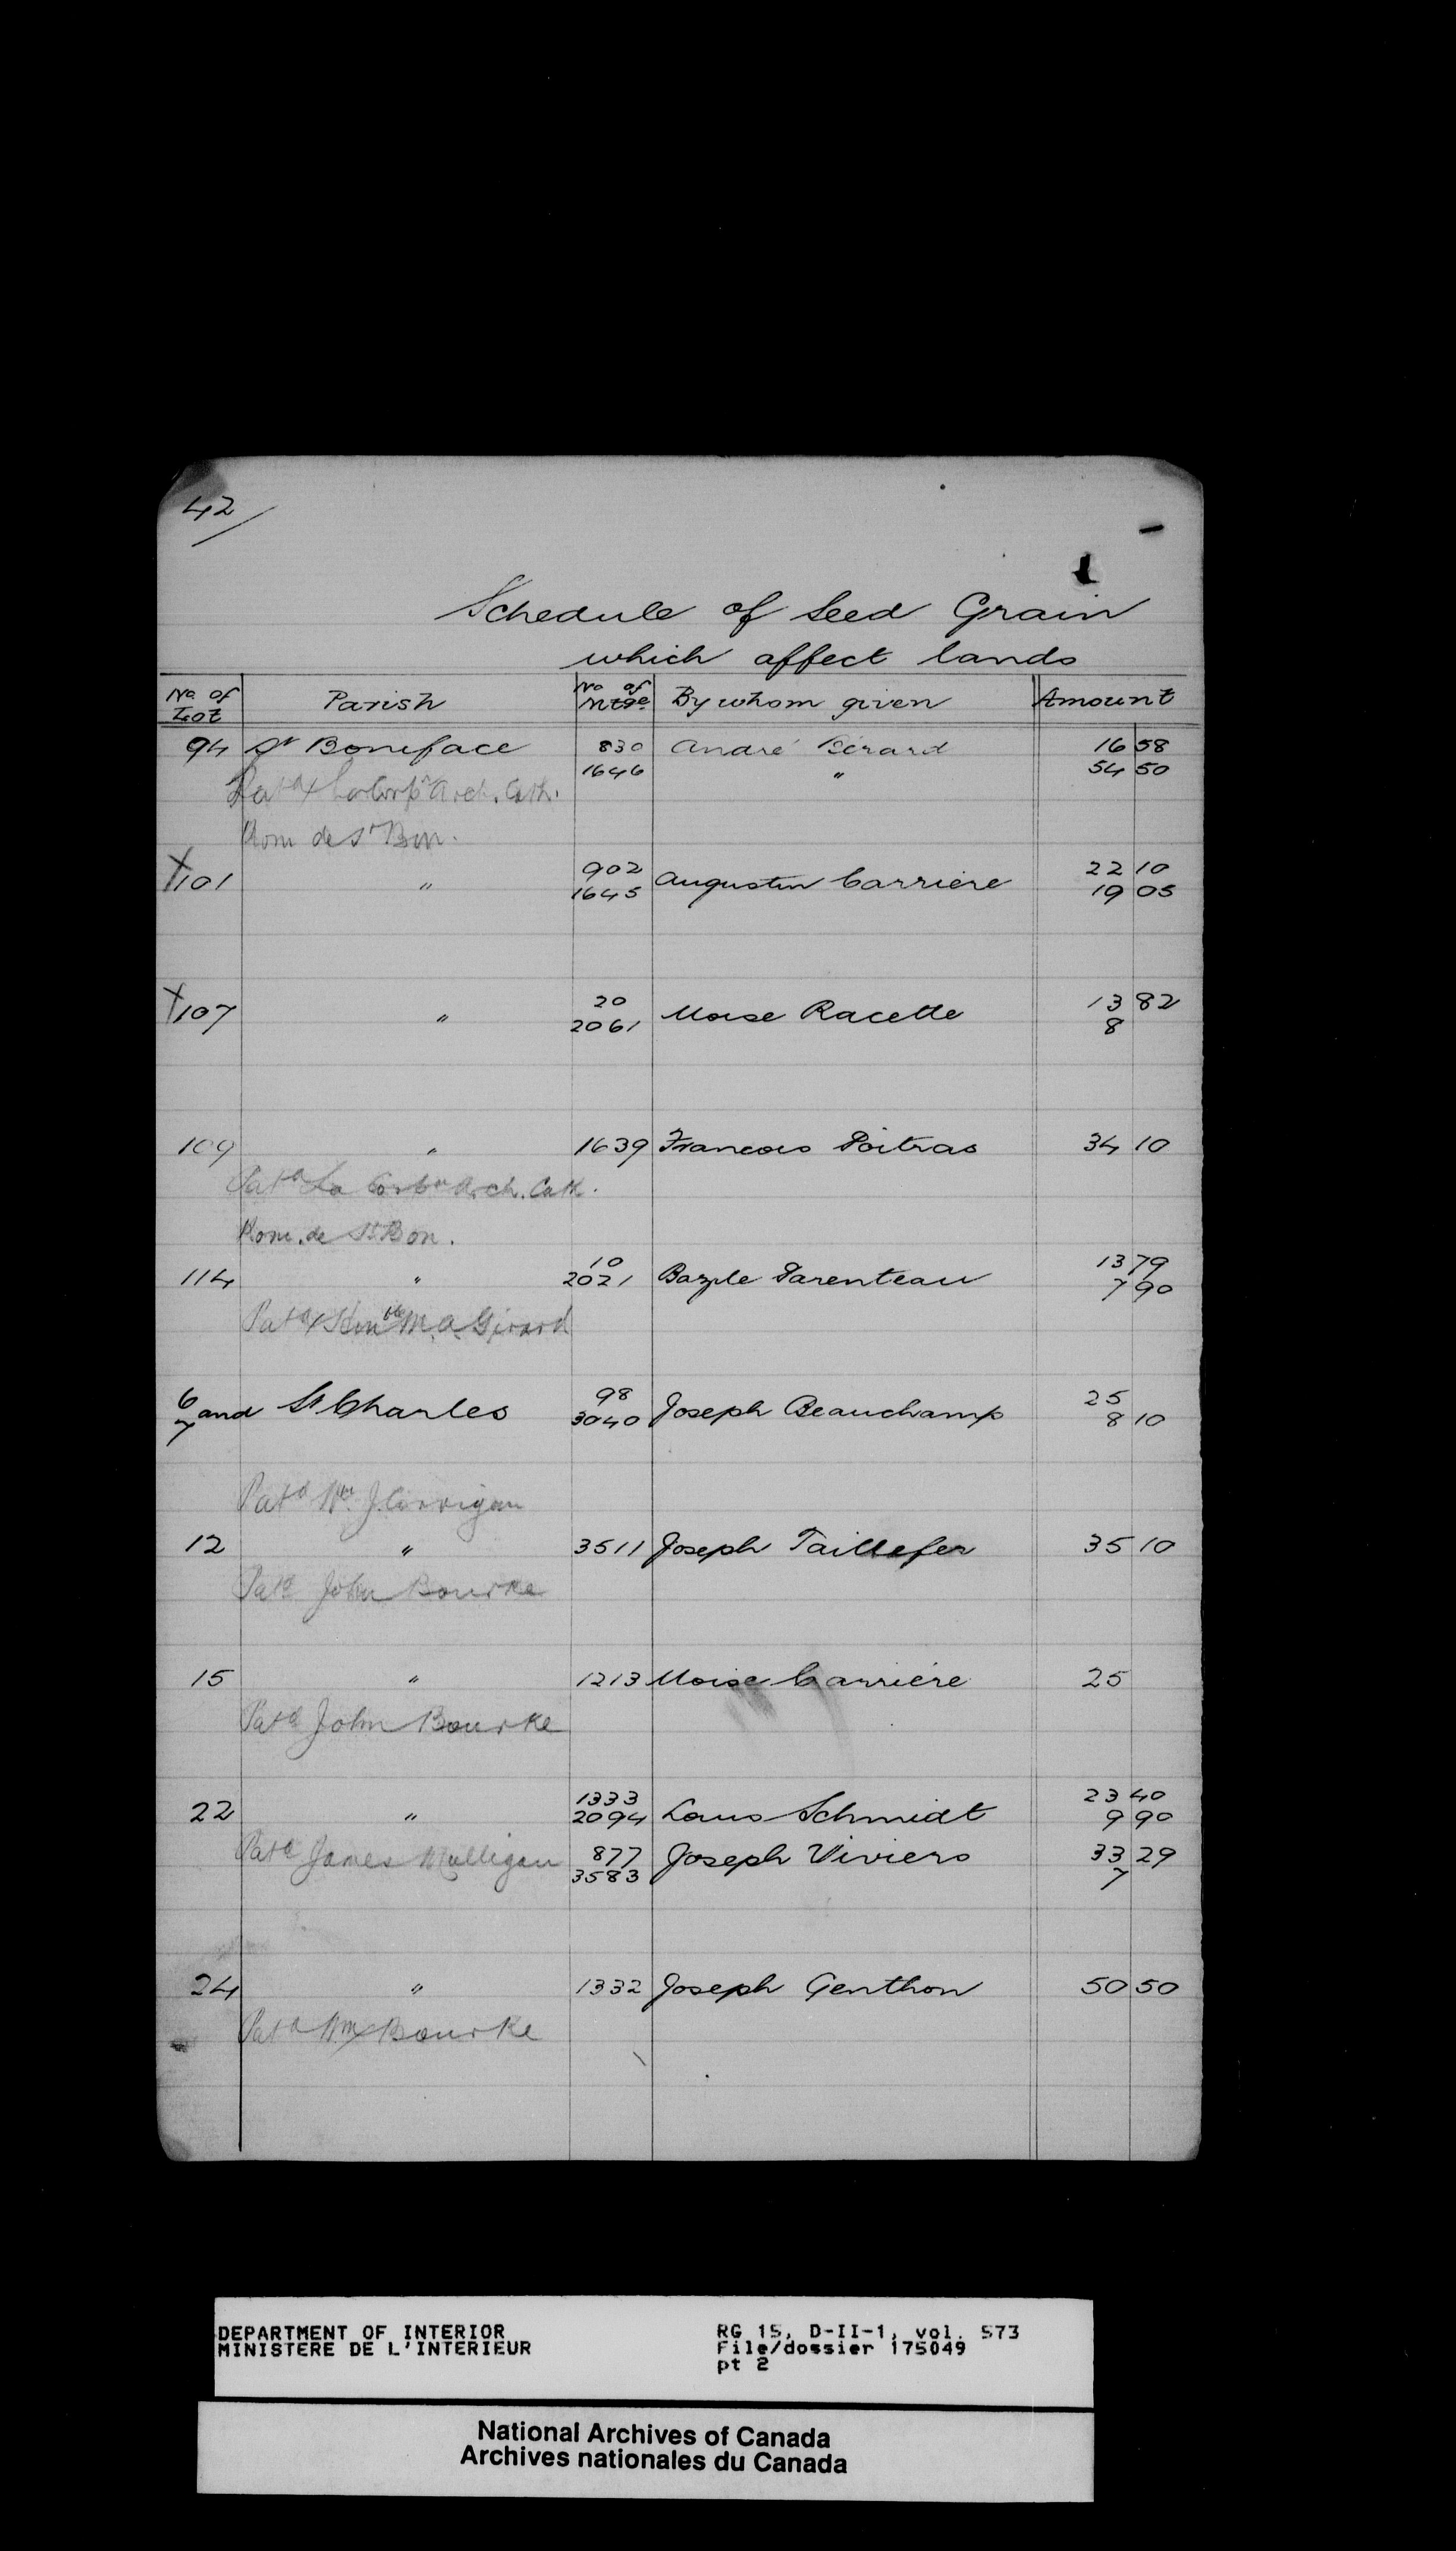 42/
Schedule of Seed Grain
which affect lands
No of Lot Parish No of Mtge By whom given Amount
94 St Boniface 830 André Bérard 16 58
1646 " 54 50
Patd La Corpn Arch. Cath.
Rom de St Bon.
X101 " 902 Augustin Carrière 22 10
1645 19 05
X107 " 20 Moise Racette 13 82
2061 8
109 " 1639 Francois Poitras 34 10
Patd La Corpn Arch. Cath.
Rom. de St Bon.
114 " 10 Bazile Parenteau 13 79
2021 7 90
Patd Honble M. A. Girard
6 and 7 St Charles 98 Joseph Beauchamp 25
3040 8 10
Patd Wm J. Corrigan
12 " 3511 Joseph Taillefer 35 10
Patd John Bourke
15 " 1213 Moise Carrière 25
Patd John Bourke
22 " 1333 Louis Schmidt 23 40
2094 9 90
Patd James Mulligan 877 Joseph Viviers 33 29
3583 7
24 " 1332 Joseph Genthon 50 50
Patd Wm Bourke
DEPARTMENT OF INTERIOR
MINISTERE DE L'INTERIEUR
RG 15, D-II-1, vol. 573
File/dossier 175049
pt 2
National Archives of Canada
Archives nationales du Canada